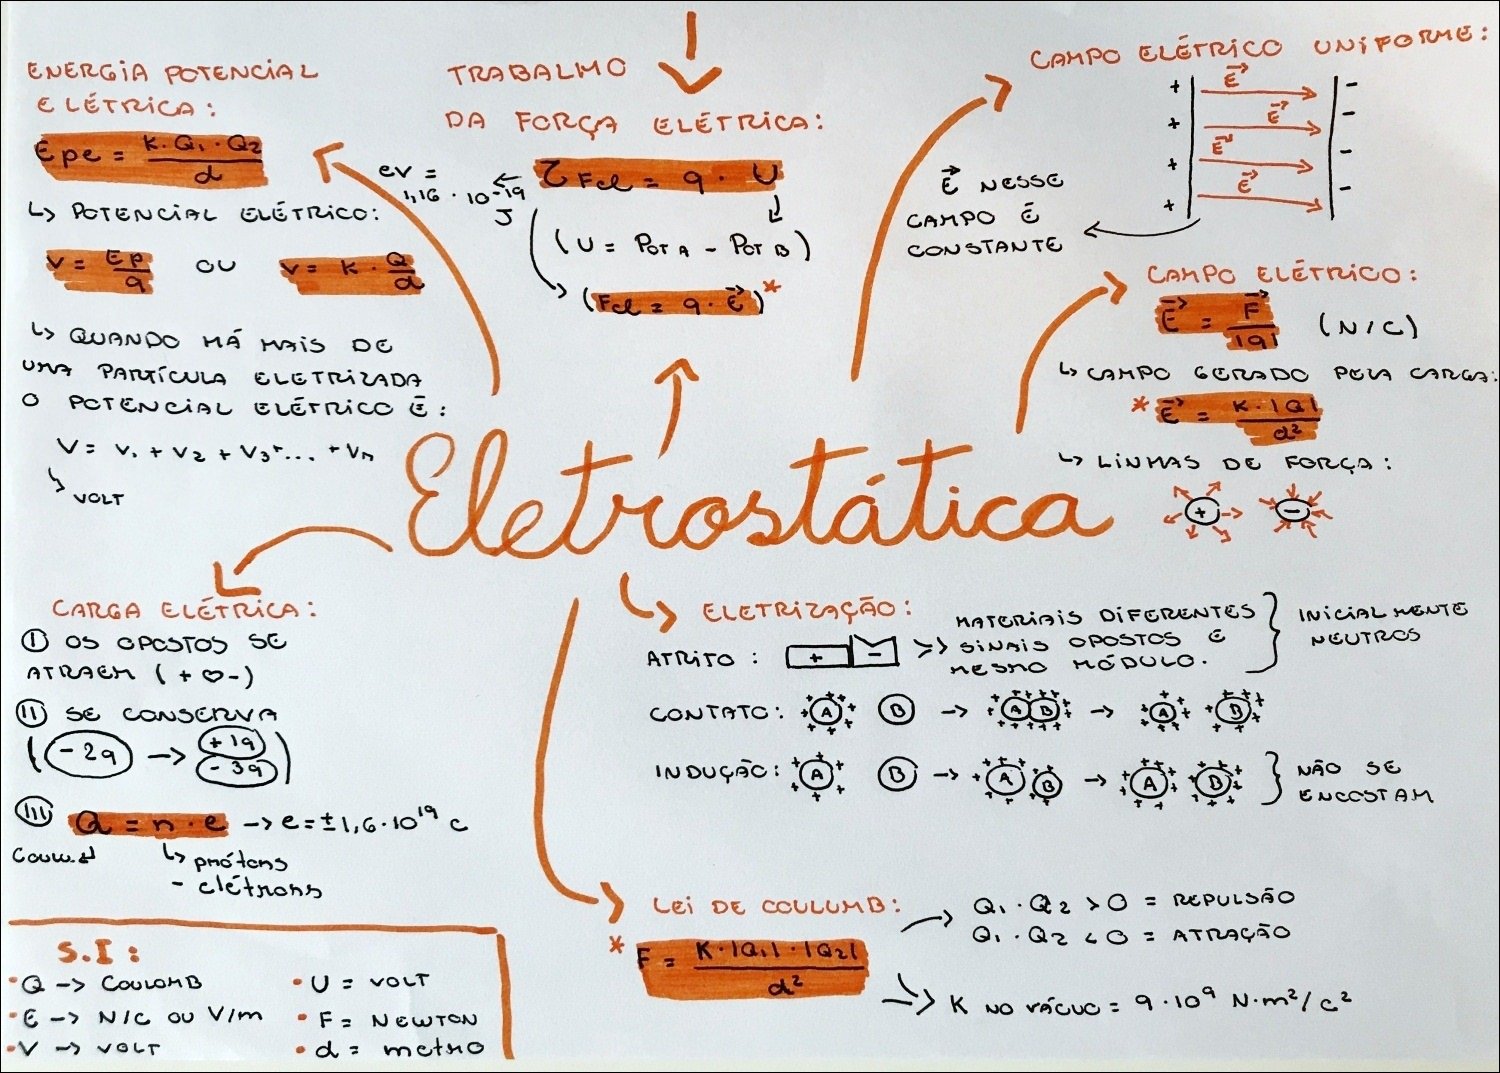 Eletrostática
ENERGIA POTENCIAL
ELÉTRICA:
Epe = K.Q1.Q2 / d
↳ POTENCIAL ELÉTRICO:
V = Ep/q OU V = K . Q/d
↳ QUANDO HÁ MAIS DE
UMA PARTÍCULA ELETRIZADA
O POTENCIAL ELÉTRICO É:
V = V1 + V2 + V3 + ... + Vn
↳ VOLT
TRABALHO
DA FORÇA ELÉTRICA:
eV =
1,16 . 10⁻¹⁹
J
← τFel = q . U
(U = POT A - POT B)
(Fel = q . E⃗)*
CAMPO ELÉTRICO UNIFORME:
+ E⃗ -
+ E⃗ -
+ E⃗ -
+ E⃗ -
+
E⃗ NESSE
CAMPO É
CONSTANTE
CAMPO ELÉTRICO:
E⃗ = F⃗/|q| (N/C)
↳ CAMPO GERADO PELA CARGA:
* E⃗ = K.|Q|/d²
↳ LINHAS DE FORÇA:
+ -
CARGA ELÉTRICA:
I OS OPOSTOS SE
ATRAEM (+♡-)
II SE CONSERVA
(-2q → +1q -3q)
III Q = n . e → e = ±1,6.10¹⁹ C
Coul. ↲ ↳ prótons
- elétrons
ELETRIZAÇÃO:
ATRITO: + - >> MATERIAIS DIFERENTES
SINAIS OPOSTOS E
MESMO MÓDULO.
} INICIALMENTE
NEUTROS
CONTATO: A B → A B → A B
INDUÇÃO: A B → A B → A B } NÃO SE
ENCOSTAM
LEI DE COULUMB:
* F = K.|Q1|.|Q2| / d²
Q1 . Q2 > 0 = REPULSÃO
Q1 . Q2 < 0 = ATRAÇÃO
K NO VÁCUO = 9 . 10⁹ N.m²/c²
S.I:
• Q → COULOMB
• E → N/C OU V/m
• V → VOLT
• U = VOLT
• F = NEWTON
• d = metro